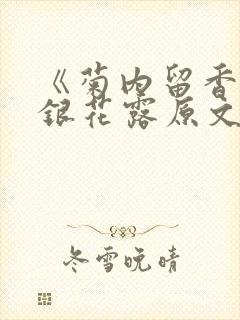 《菊内留香
銀花露原文
冬雪晚晴